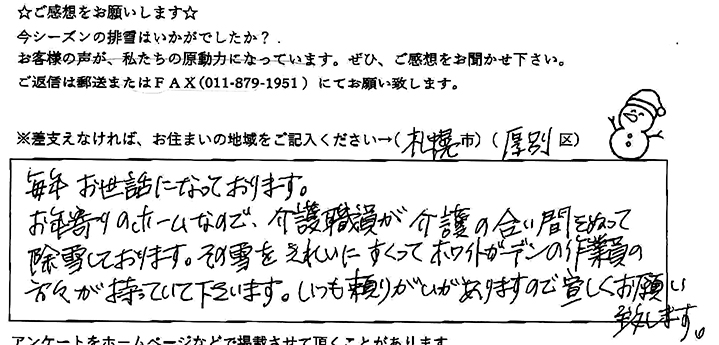 ☆ご感想をお願いします☆
今シーズンの排雪はいかがでしたか？
お客様の声が、私たちの原動力になっています。ぜひ、ご感想をお聞かせ下さい。
ご返信は郵送またはＦＡＸ(011-879-1951）にてお願い致します。
※差支えなければ、お住まいの地域をご記入ください→(札幌市）(厚別区）
毎年お世話になっております。
お年寄りのホームなので、介護職員が介護の合い間をぬって
除雪しております。その雪をきれいにすくってホワイトガーデンの作業員の
方々が持っていて下さいます。いつも頼りがいがありますので宜しくお願い
致します。
アンケートをホームページなどで掲載させて頂くことがあります